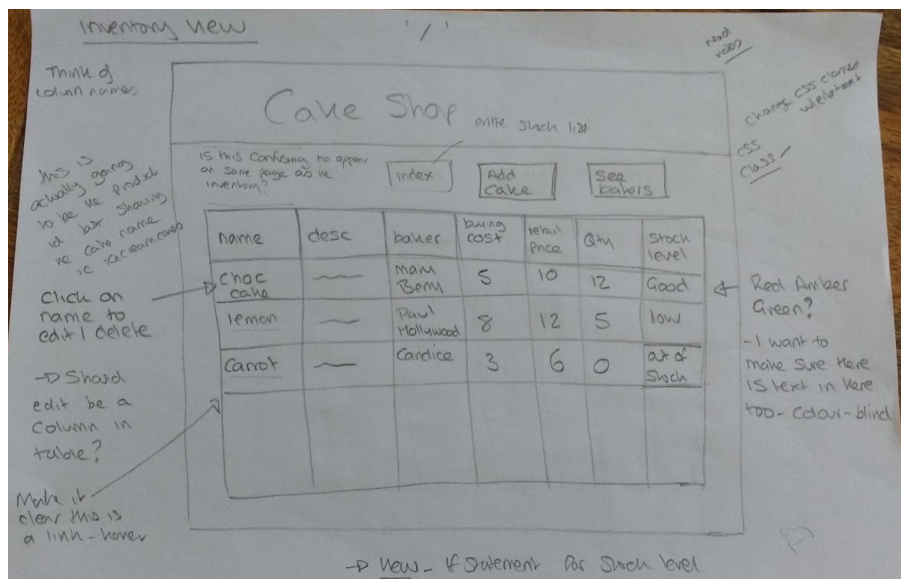 Inventory View
'/'
Think of
column names
read
notes
change CSS classes
CSS
Class
Cake Shop
entire stock list
is this confusing to appear
on same page as the
inventory?
index
Add
Cake
See
bakers
this is
actually going
to be the product
id but showing
the cake name
ie icecreamcones
name
desc
baker
buying
cost
retail
price
Qty
Stock
level
Choc
cake
Mary
Berry
5
10
12
Good
lemon
Paul
Hollywood
8
12
5
low
Carrot
Candice
3
6
0
out of
Stock
Click on
name to
edit / delete
→ Should
edit be a
column in
table?
Make it
clear this is
a link - hover
Red Amber
Green?
- I want to
make sure there
IS text in here
too - colour-blind
→ View - If statement for stock level